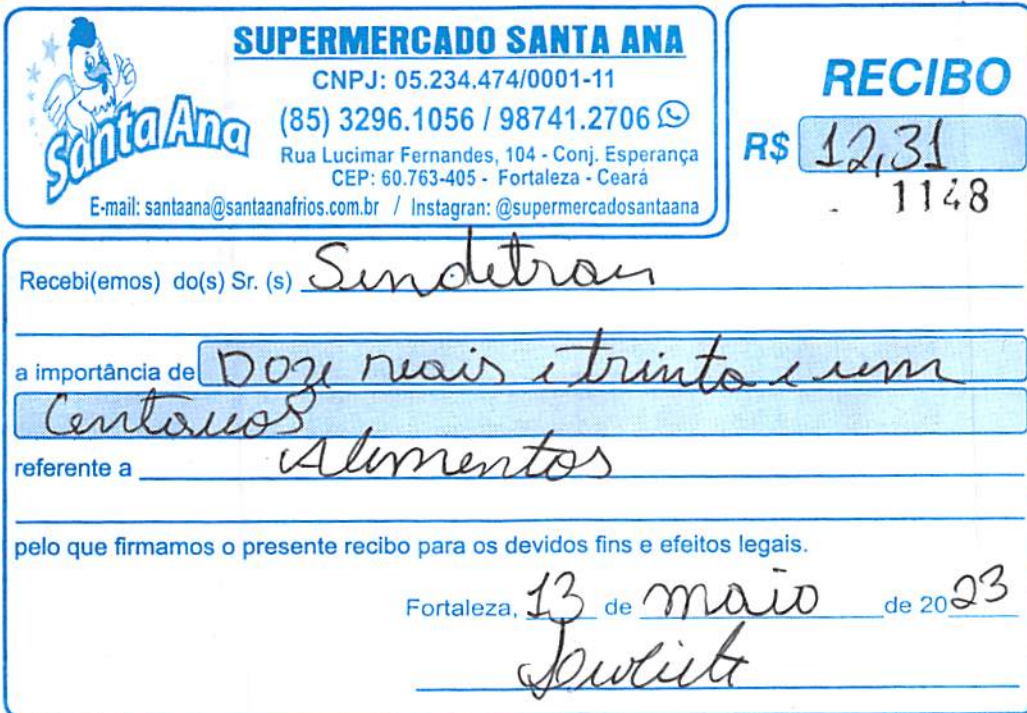 Santa Ana
SUPERMERCADO SANTA ANA
CNPJ: 05.234.474/0001-11
(85) 3296.1056 / 98741.2706
Rua Lucimar Fernandes, 104 - Conj. Esperança
CEP: 60.763-405 - Fortaleza - Ceará
E-mail: santaana@santaanafrios.com.br / Instagran: @supermercadosantaana
RECIBO
R$ 12,31
1148
Recebi(emos) do(s) Sr. (s) Sindetran
a importância de Doze reais e trinta e um
Centavos
referente a Alimentos
pelo que firmamos o presente recibo para os devidos fins e efeitos legais.
Fortaleza, 13 de maio de 2023